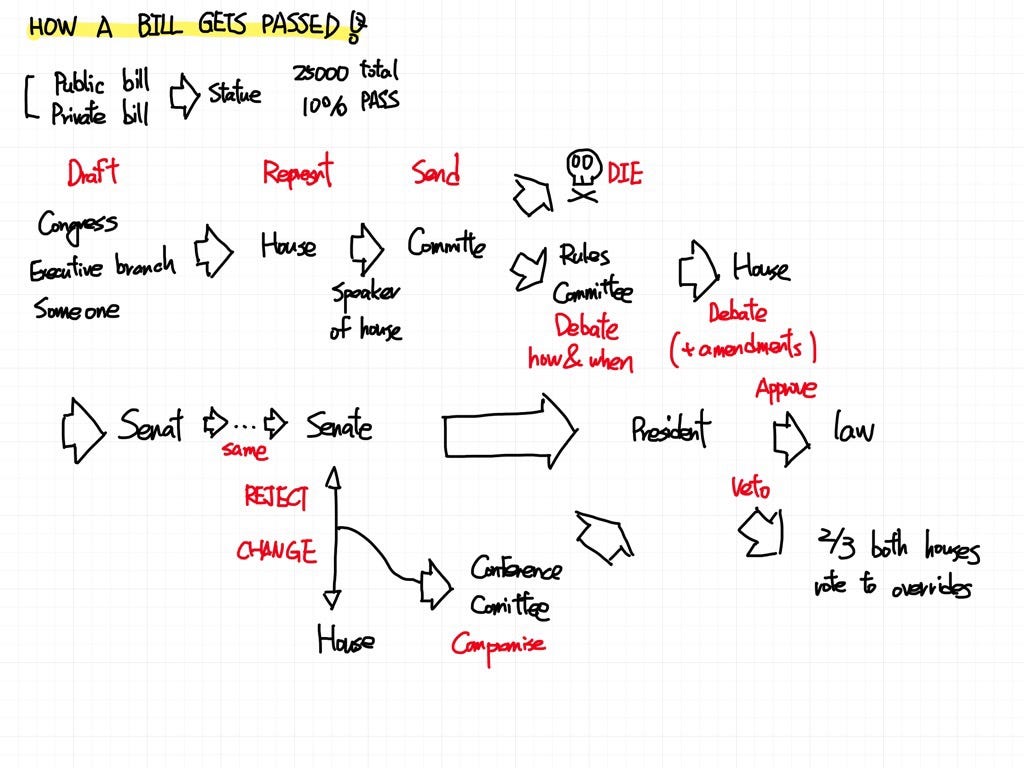 HOW A BILL GETS PASSED!?
Public bill
Private bill
Statue
25000 total
10% PASS
Draft
Represnt
Send
DIE
Congress
Executive branch
Someone
House
Speaker
of house
Committe
Rules
Committee
Debate
how & when
House
Debate
(+ amendments)
Senat
same
Senate
President
Approve
law
Veto
2/3 both houses
vote to overrides
REJECT
CHANGE
House
Conference
Comittee
Compromise